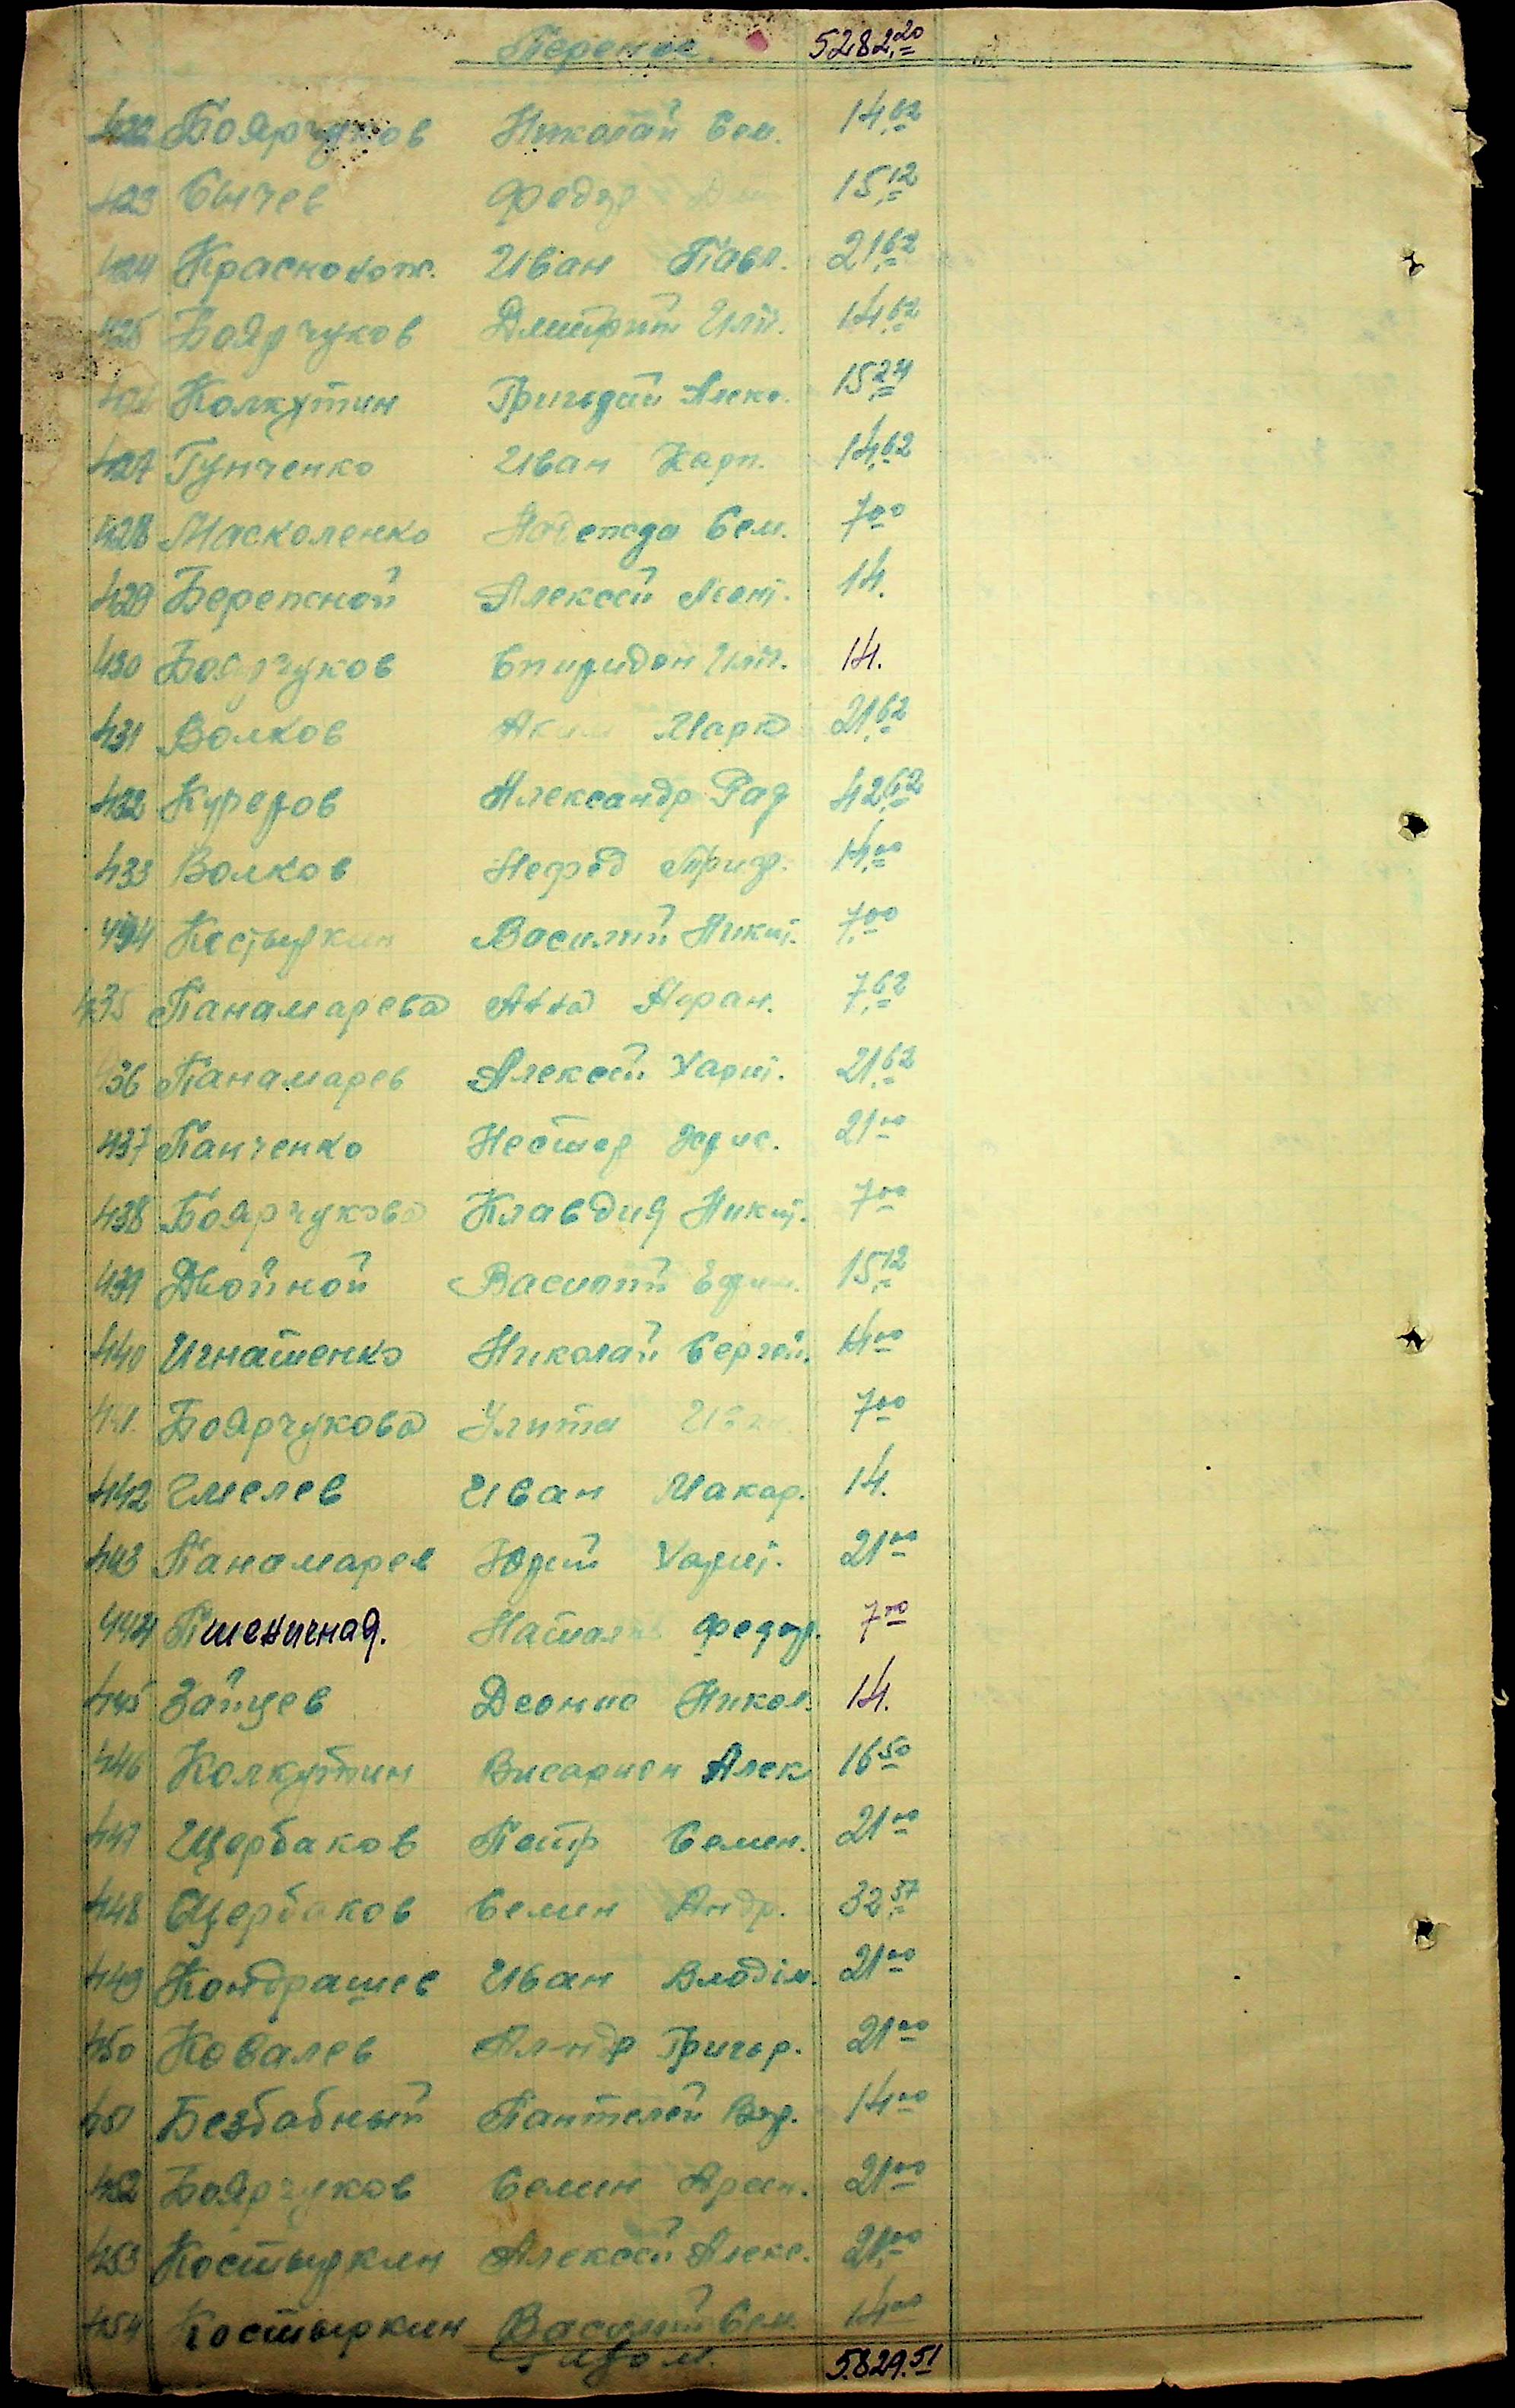 Перенос. 5282,20
422 Боярчуков Николай Сем. 14,62
423 Сычев Федор 15,12
424 Краснокот. Иван Павл. 21,62
425 Боярчуков Дмитрий Илл. 14,62
Колкутин Григорий Алекс. 15,24
427 Гунченко Иван Карп. 14,62
428 Масколенко Надежда Сем. 7,00
429 Бережной Алексей Леонт. 14.
430 Боярчуков Спиридон Илл. 14.
431 Волков Аким Марк 21,62
432 Куреров Александр Рад 42,62
433 Волков Нефед Григ. 14,00
434 Костыркин Василий Никит. 7,00
435 Панамарева Анна Афран. 7,62
436 Панамарев Алексей Харит. 21,62
437 Панченко Нестер 21,00
438 Боярчукова Клавдия Никит. 7,00
439 Двойной Василий Ефим. 15,12
440 Игнатенко Николай Сергей. 14,00
441. Боярчукова Улита 7,00
442 Чмелев Иван Макар. 14.
443 Панамарев Юрий Харит. 21,00
444 Пшеничная. Наталия Федор. 7,00
445 Зайцев Деонис Никол. 14.
446 Колкутин Висарион Алек 16,50
447 Щербаков Петр Семен. 21,00
448 Щербаков Семен Андр. 32,57
449 Кондрашев Иван Владім. 21,00
450 Ковалев Ал-ндр Григор. 21,00
451 Безбабный Пантелей 14,00
452 Боярчуков Семен Арен. 21,00
453 Костыркин Алексей Алекс. 21,00
454 Костыркин Василий Сем. 14,00
Разом. 5.829.51